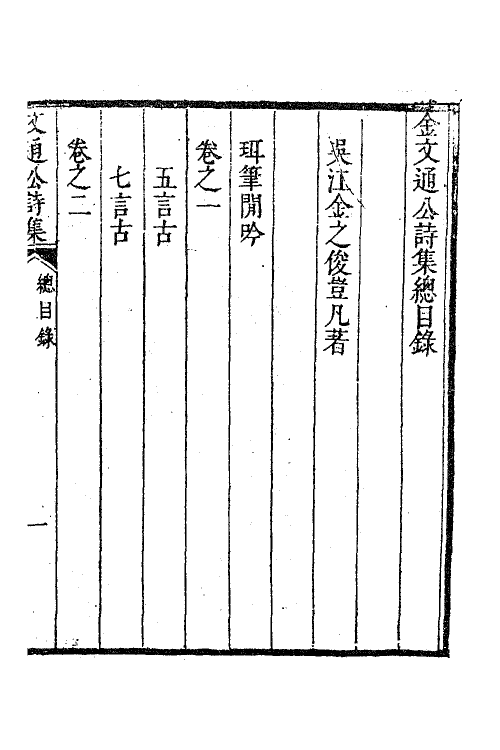 金文通公詩集總目錄
吳江金之俊豈凡著
珥筆閒吟
卷之一
五言古
七言古
卷之二
文通公詩集
總目錄
一